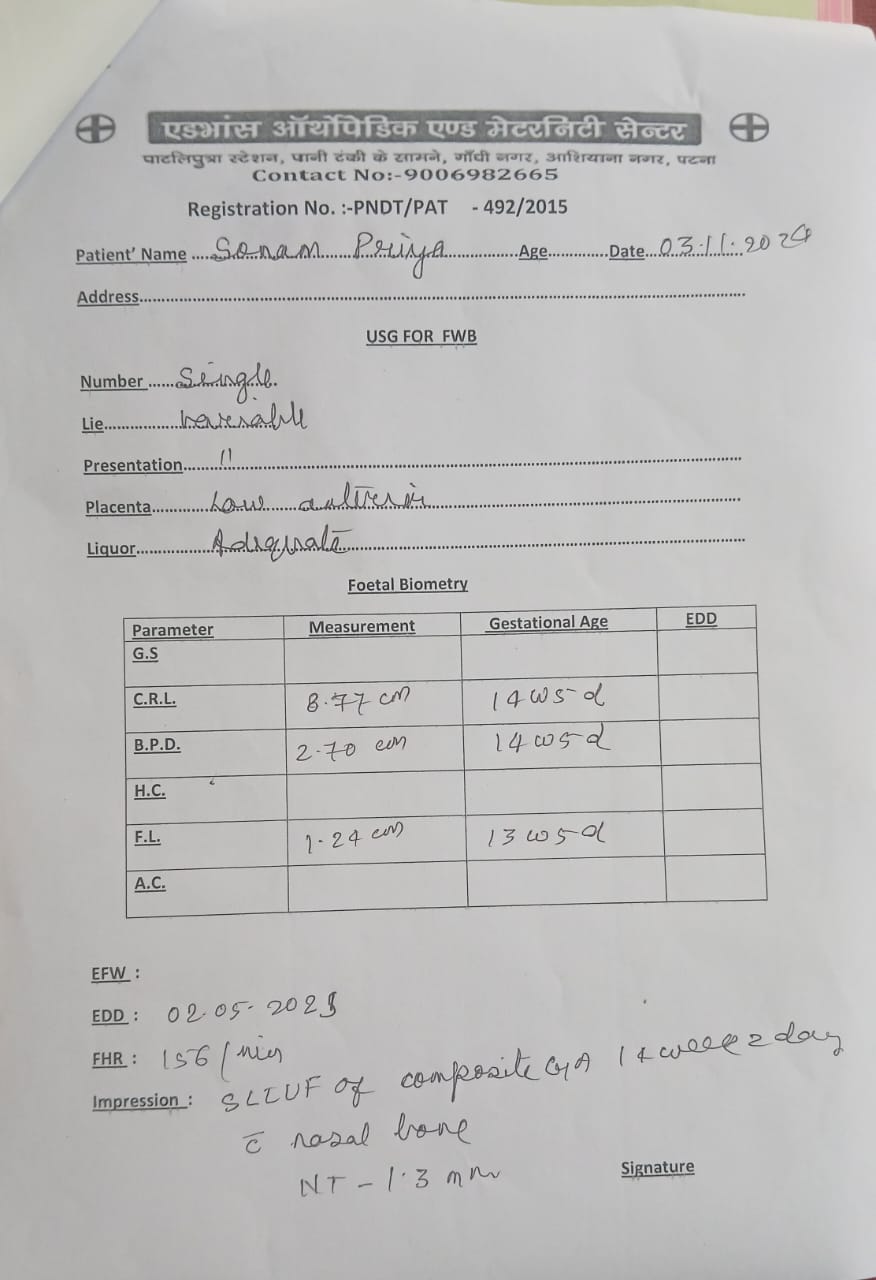 एडभांस ऑर्थोपेडिक एण्ड मेटरनिटी सेन्टर
पाटलिपुत्रा स्टेशन, पानी टंकी के सामने, गाँधी नगर, आशियाना नगर, पटना
Contact No:-9006982665
Registration No. :-PNDT/PAT - 492/2015
Patient' Name ....Sonam Priya...............Age.............Date...03.11.2024
Address.......................................................
USG FOR FWB
Number ......Single.
Lie.................
Presentation.......11.......................................
Placenta............Low
Liquor..............Adequate.......................................
Foetal Biometry
Parameter Measurement Gestational Age EDD
G.S
C.R.L. 8.77 cm 14 w 5 d
B.P.D. 2.70 cm 14 w 5 d
H.C.
F.L. 1.24 cm 13 w 5 d
A.C.
EFW :
EDD : 02.05.2025
FHR : 156 / min
Impression : SLIUF of composite GA 14 week 2 day
c̄ nasal bone
NT - 1.3 mm
Signature